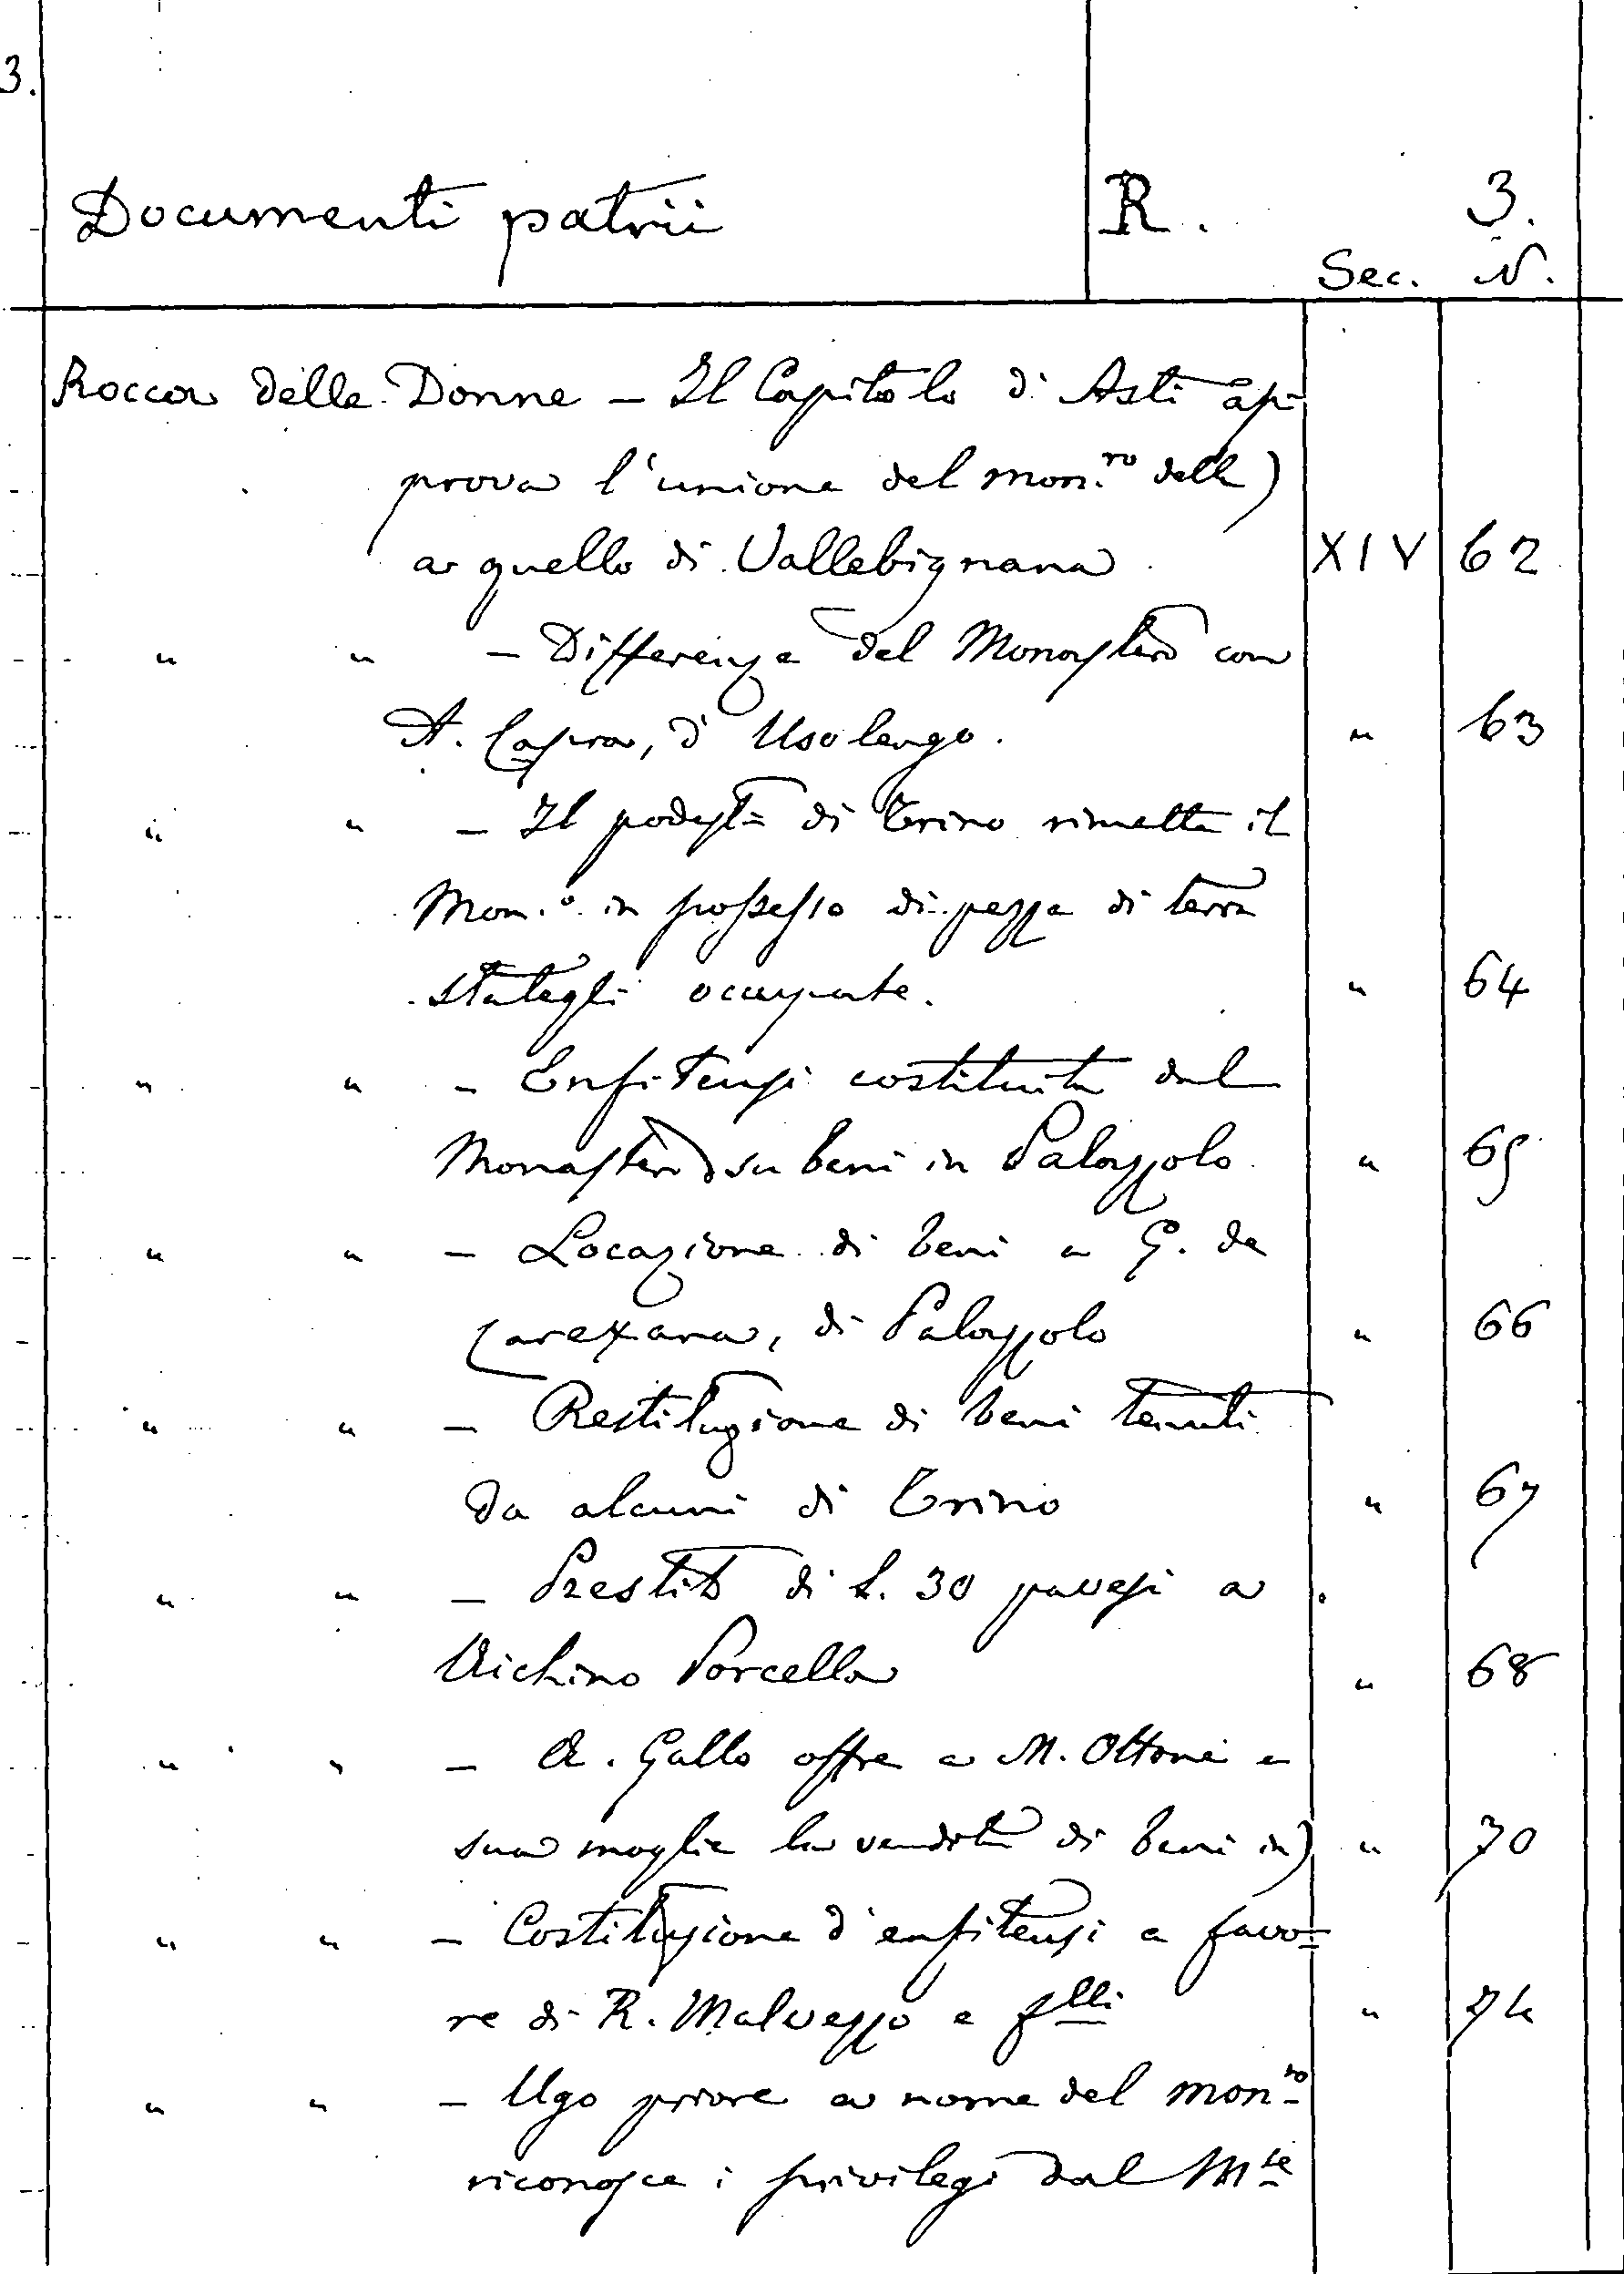 3.
Documenti patrii R. 3.
Sec. N.
Rocca delle Donne - Il Capitolo di Asti ap-
prova l'unione del mon.ro delle)
a quello di Vallebignana. XIV 62
" " - Differenze del Monastero con
A. Capra, di Usolengo. " 63
" " - Il podestà di Trino rimette il
Mon.o in possesso di pezze di terra
stategli occupate. " 64
" " - Enfiteusi costituita dal
Monastero su beni in Palazzolo. " 65
" " - Locazione di beni a G. de
Carexana, di Palazzolo " 66
" " - Restituzione di beni tenuti
da alcuni di Trino " 67
" " - Prestito di L. 30 pavesi a
Vichino Porcella " 68
" " - A. Gallo offre a M. Ottone e
sua moglie la vendita di beni in) " 70
" " - Costituzione d'enfiteusi a favo=
re di R. Malvezzo e flli "
" " - Ugo priore a nome del mon.ro
riconosce i privilegi dal Mse